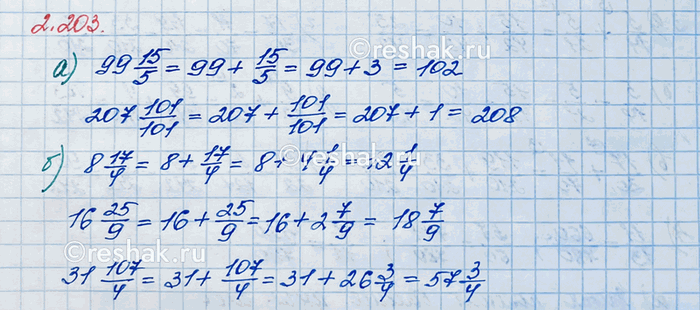 2.203.
а) 99 15/5 = 99 + 15/5 = 99 + 3 = 102
207 101/101 = 207 + 101/101 = 207 + 1 = 208
б) 8 17/4 = 8 + 17/4 = 8 + 4 1/4 = 12 1/4
16 25/9 = 16 + 25/9 = 16 + 2 7/9 = 18 7/9
31 107/4 = 31 + 107/4 = 31 + 26 3/4 = 57 3/4
©reshak.ru
©reshak.ru
©reshak.ru